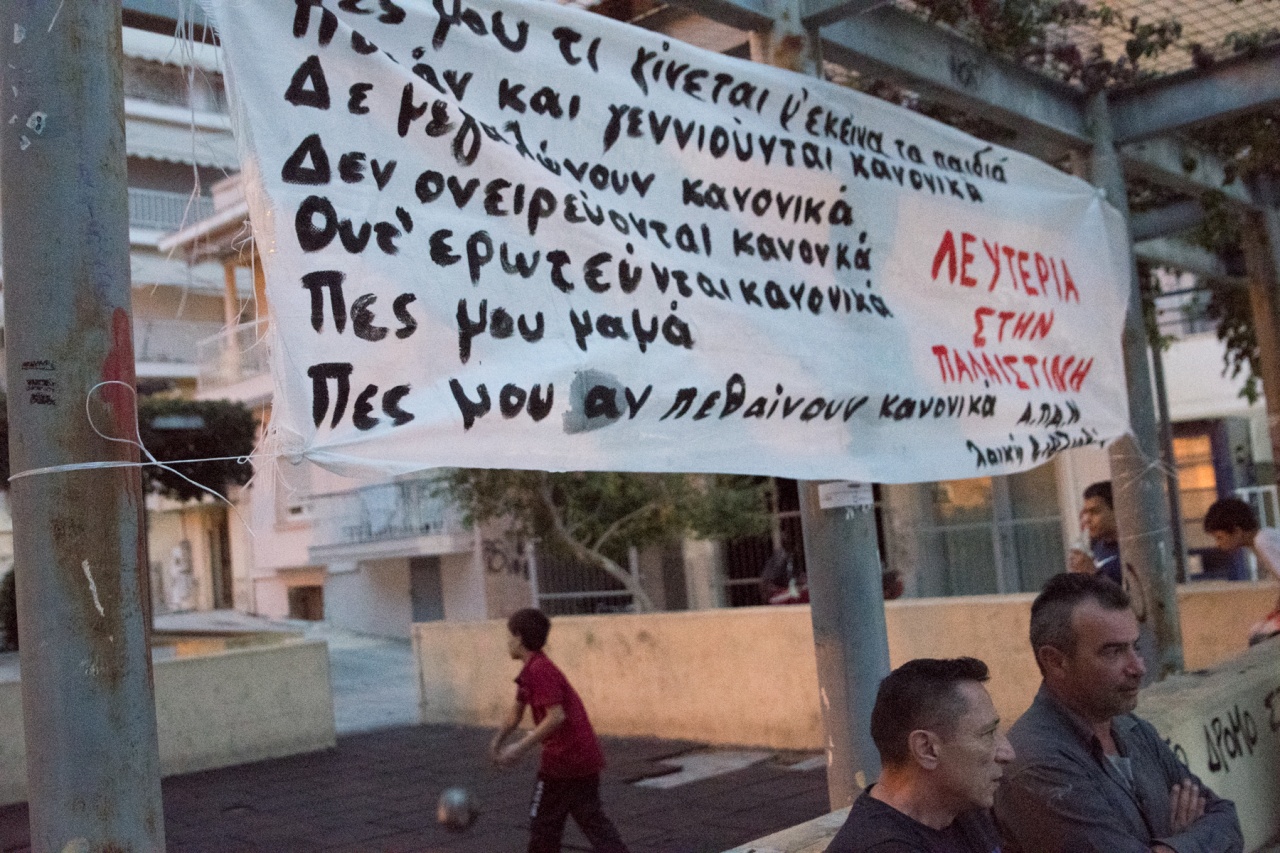 Πες μου τι γίνεται μ' εκείνα τα παιδιά
και γεννιούνται κανονικα
Δε μεγαλώνουν κανονικά
Δεν ονειρεύονται κανονκά
Ουτ' ερωτεύνται κανονικά
Πες μου μαμά
Πες μου αν πεθαίνουν κανονικά
ΛΕΥΤΕΡΙΑ
ΣΤΗΝ
ΠΑΛΑΙΣΤΙΝΗ
Α.Π.Δ.Ν
λαική
ΔΡΟΜΟ